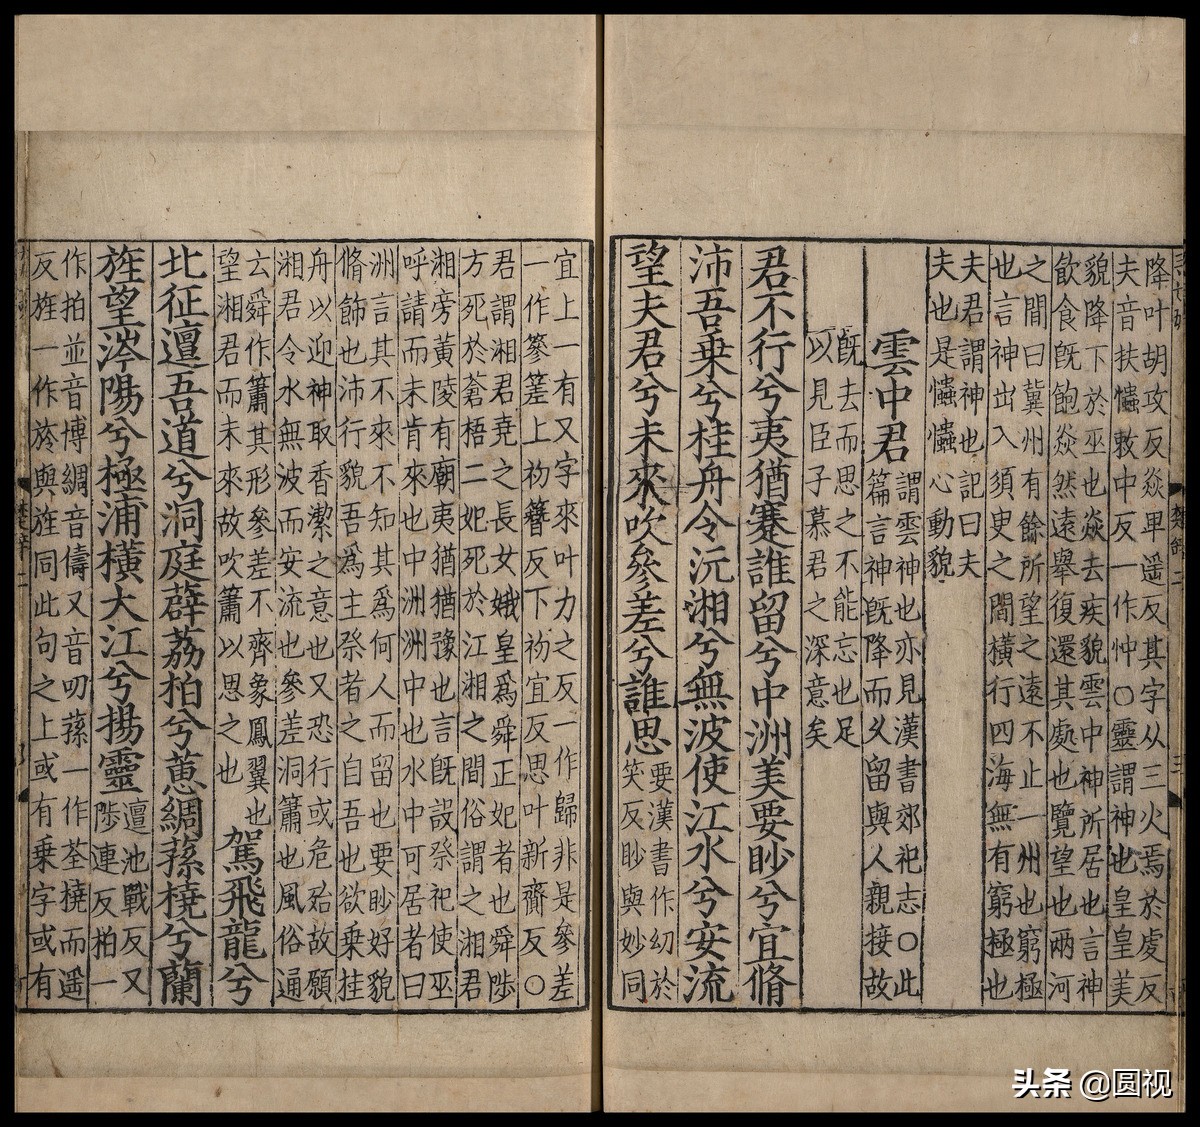 降叶胡攻反焱卑遥反其字从三火焉於虔反
夫音扶𢥞敕中反一作忡○靈謂神也皇皇美
貌降下於巫也焱去疾貌雲中神所居也言神
飲食旣飽焱然遠舉復還其處也覽望也兩河
之間曰冀州有餘所望之遠不止一州也窮極
也言神出入須臾之間橫行四海無有窮極也
夫君謂神也記曰夫
夫也是𢥞𢥞心動貌
雲中君
謂雲神也亦見漢書郊祀志○此
篇言神旣降而久留與人親接故
旣去而思之不能忘也足
以見臣子慕君之深意矣
君不行兮夷猶蹇誰留兮中洲美要眇兮宜脩
沛吾乗兮桂舟令沅湘兮無波使江水兮安流
望夫君兮未來吹參差兮誰思
要漢書作幼於
笑反眇與妙同
宜上一有又字來叶力之反一作歸非是參差
一作篸䇡上初簪反下初宜反思叶新齎反○
君謂湘君堯之長女娥皇爲舜正妃者也舜陟
方死於蒼梧二妃死於江湘之間俗謂之湘君
湘旁黄陵有廟夷猶猶豫也言旣設祭祀使巫
呼請而未肯來也中洲洲中也水中可居者曰
洲言其不來不知其爲何人而留也要眇好貌
脩飾也沛行貌吾爲主祭者之自吾也欲乗桂
舟以迎神取香潔之意也又恐行或危殆故願
湘君令水無波而安流也參差洞簫也風俗通
云舜作簫其形參差不齊象鳳翼也
望湘君而未來故吹簫以思之也
駕飛龍兮
北征邅吾道兮洞庭薜荔柏兮蕙綢蓀橈兮蘭
旌望涔陽兮極浦橫大江兮揚靈
邅池戰反又
陟連反柏一
作拍並音博綢音儔又音叨蓀一作荃橈而遥
反旌一作旍與旌同此句之上或有乗字或有
头条 @圆视